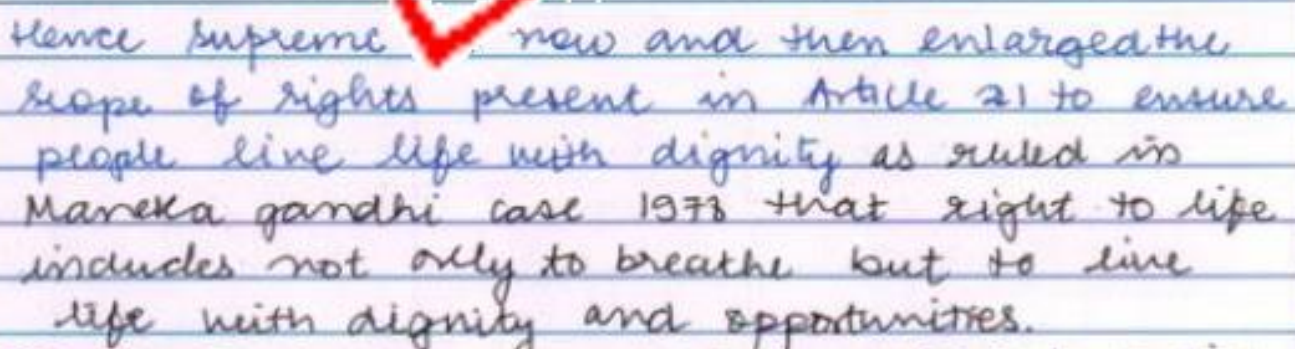 Hence supreme now and then enlarged the
scope of rights present in Article 21 to ensure
people live life with dignity as ruled in
Maneka gandhi case 1978 that right to life
includes not only to breathe but to live
life with dignity and opportunities.